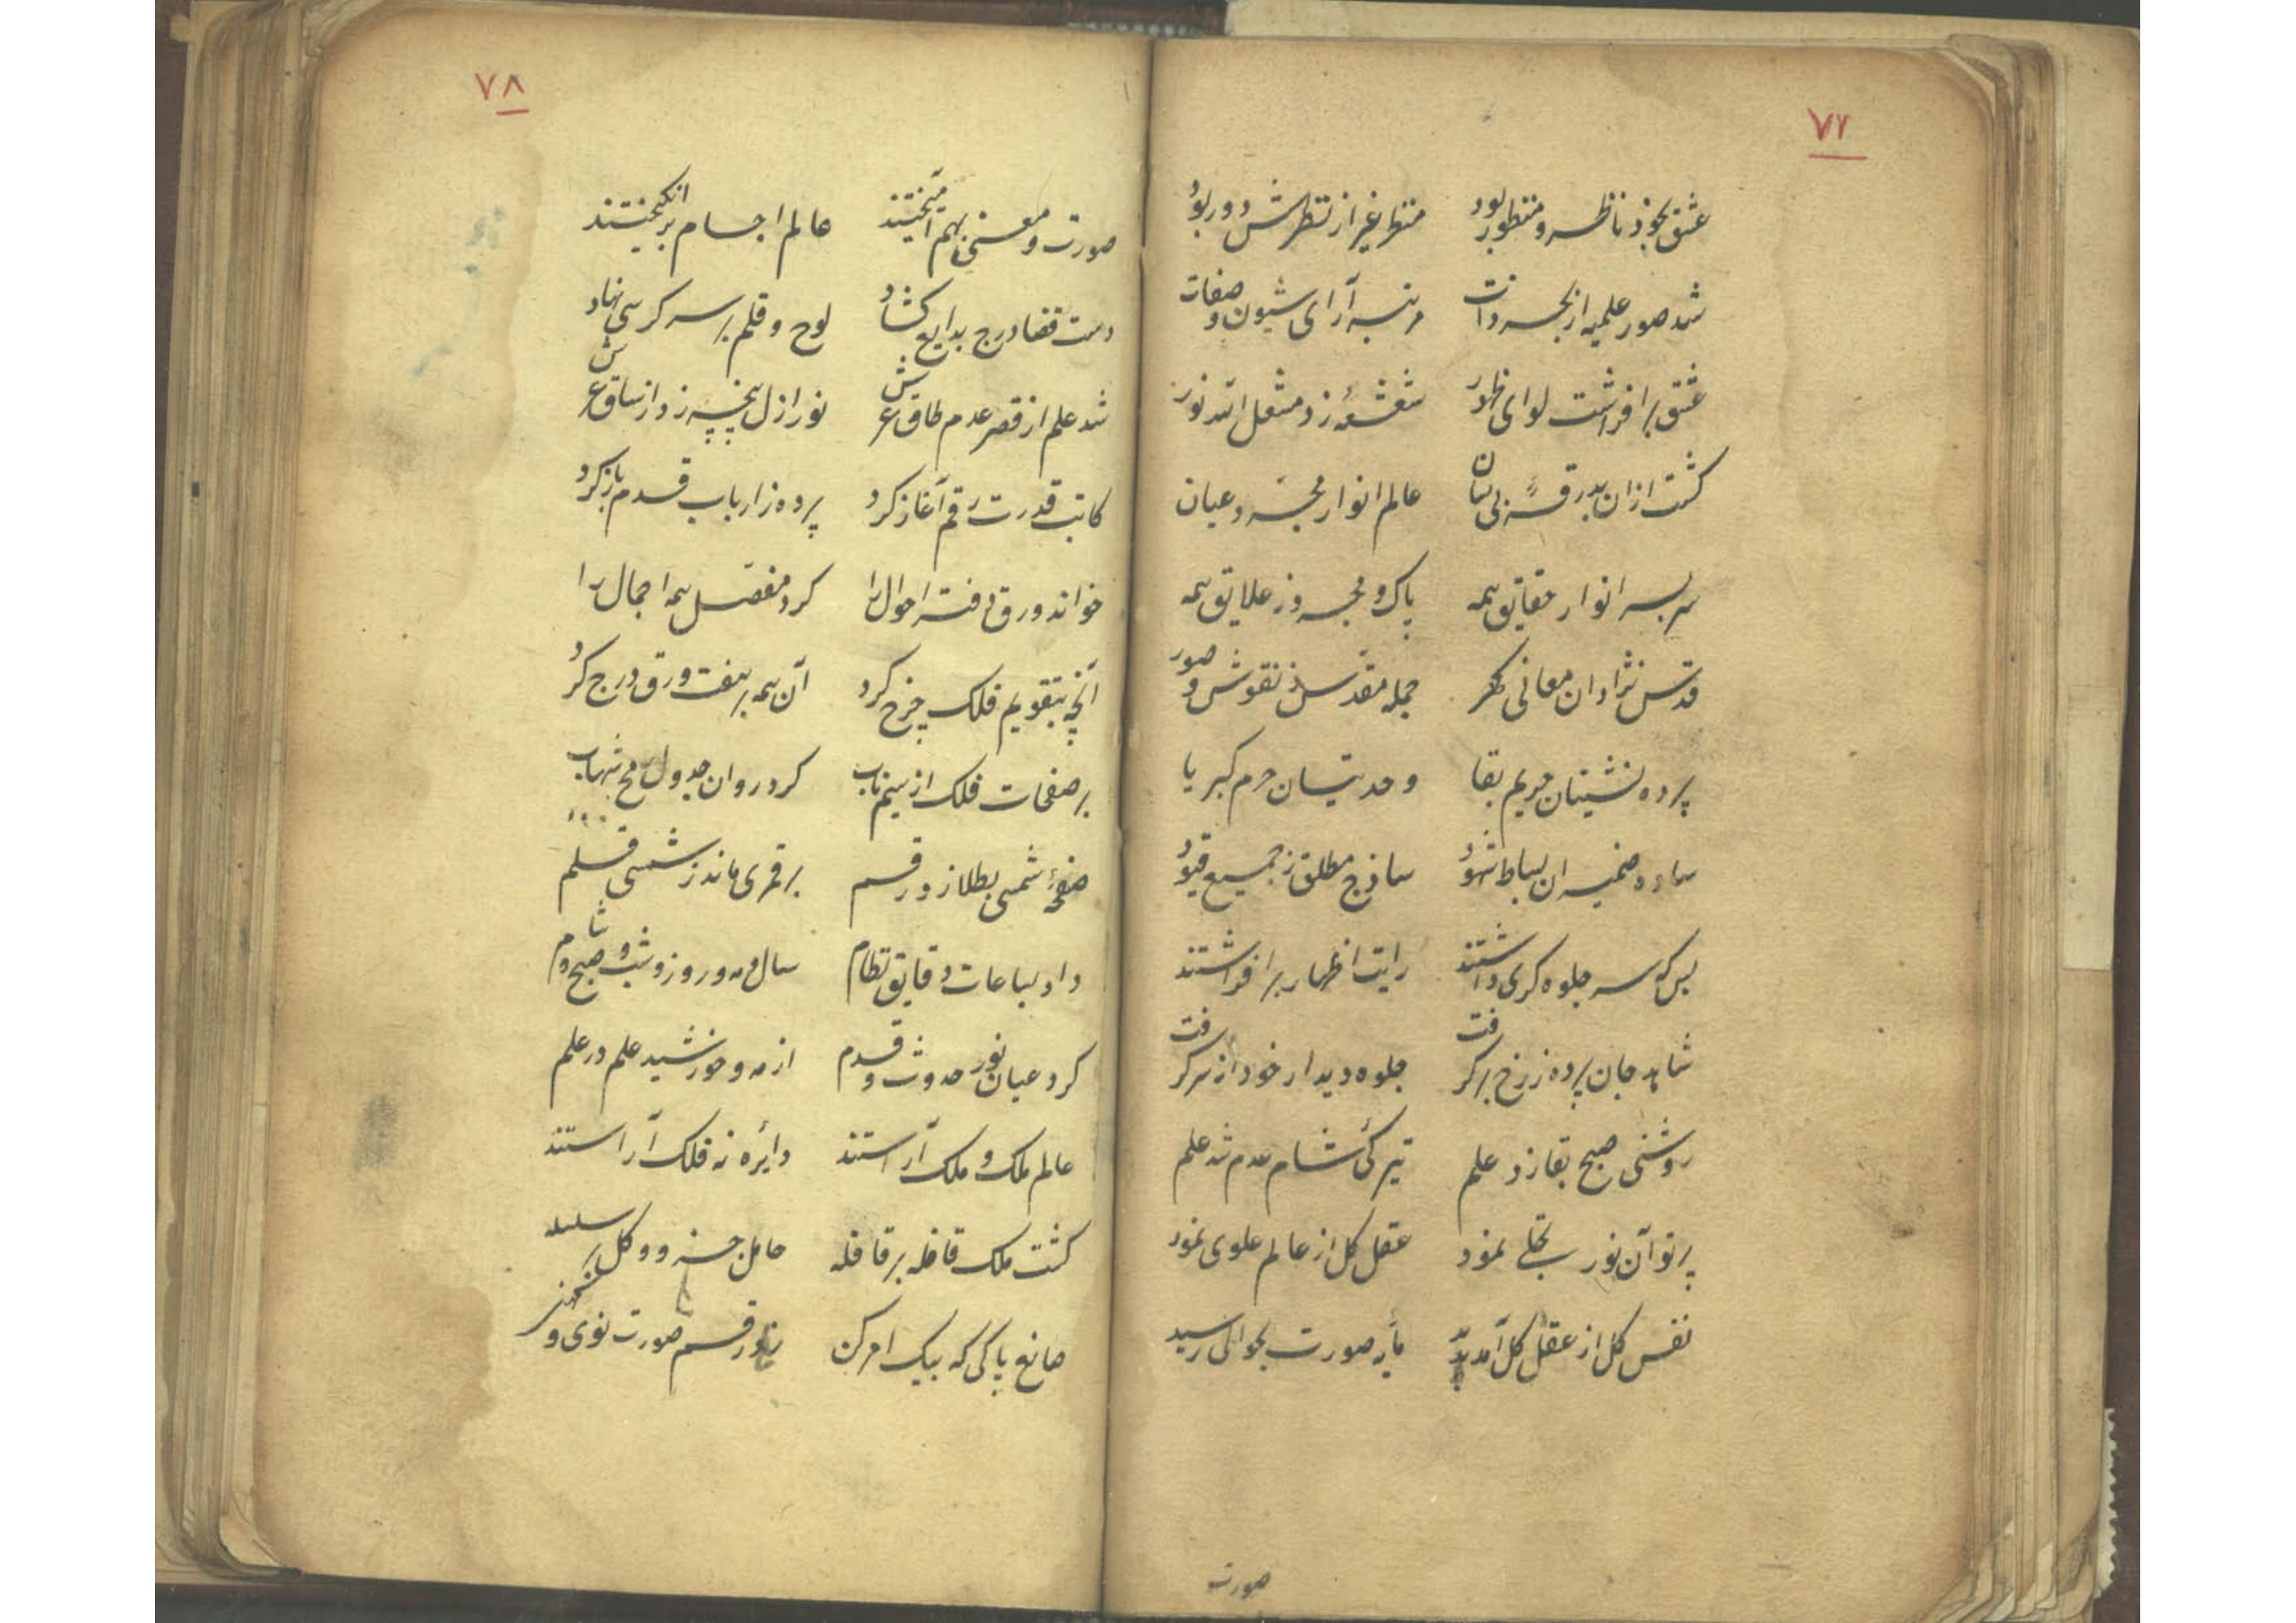 ۷۷
عشق بخود ناظر و منظور بود منظر غیر از نظرش دور بود
شد صور علمیه از بحر ذات مرتبه آرای شیون و صفات
عشق برافراشت لوای ظهور شعشعهٔ زد مشعل الله نور
کشت ازان بدرقهٔ بی نشان عالم انوار مجرد عیان
سر بسر انوار حقایق همه پاک و مجرد ز علایق همه
قدس نژادان معانی کهر جمله مقدس ز نقوش و صور
پرده نشینان حریم بقا وحدتیان حرم کبریا
ساده ضمیران بساط شهود ساذج مطلق ز جمیع قیود
بس که سر جلوه کری داشتند رایت اظهار برافراشتند
شاهد جان پرده ز رخ برکرفت جلوه دیدار خود از سر کرفت
روشنی صبح بقا زد علم تیرکی شام عدم شد علم
پرتو آن نور تجلی نمود عقل کل از عالم علوی نمود
نفس کل از عقل کل آمد پدید مایه صورت بحوالی رسید
صورت
۷۸
صورت و معنی بهم آمیختند عالم اجسام برانکیختند
دست قضا درج بدایع کشاد لوح و قلم بر سر کرسی نهاد
شد علم از قصر عدم طاق عرش نور ازل پنجه زد از ساق عرش
کاتب قدرت رقم آغاز کرد پرده ز ارباب قدم باز کرد
خواند ورق دفتر احوال را کرد مفصل همه اجمال را
آنچه بتقویم فلک خرج کرد آن همه بر هفت ورق درج کرد
بر صفحات فلک از سیم ناب کرد روان جدول مح شهاب
صفحهٔ شمسی بطلا زد رقم بر قمری ماند ز شمسی قلم
داد بساعات و قایق نظام سال و مه و روز و شب و صبح و شام
کرد عیان نور حدوث و قدم از مه و خورشید علم در علم
عالم ملک و ملک آراستند دایره نه فلک آراستند
کشت ملک قافله بر قافله حامل جزو و کل سلسله
صانع پاکی که بیک امر کن زد رقم صورت نوی و کهن